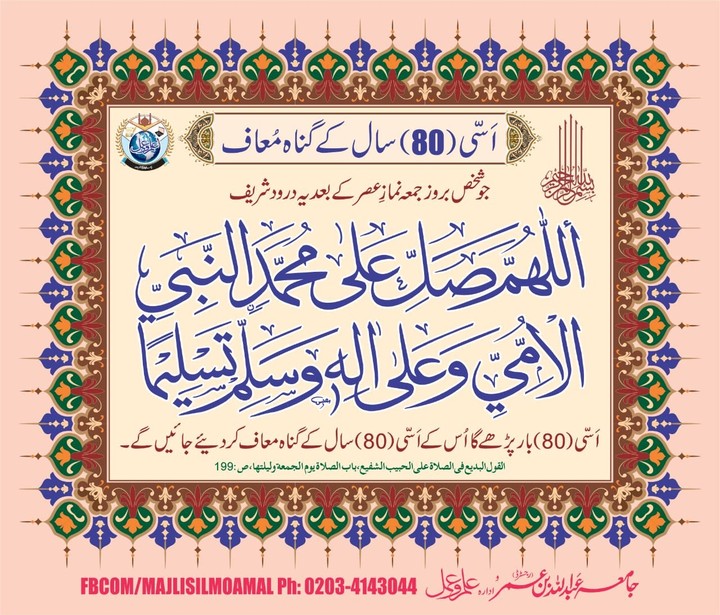 اَسّی (80) سال کے گناہ مُعاف
بسم اللہ الرحمن الرحیم
جو شخص بروز جمعہ نمازِ عصر کے بعد یہ درود شریف
اَللّٰهُمَّ صَلِّ عَلٰى مُحَمَّدِ النَّبِيِّ
الْاُمِّيِّ وَعَلٰى اٰلِهٖ وَسَلِّمْ تَسْلِيْمًا
اَسّی (80) بار پڑھے گا اُس کے اَسّی (80) سال کے گناہ معاف کردیئے جائیں گے۔
القول البدیع فی الصلاة علی الحبیب الشفیع، باب الصلاة یوم الجمعة ولیلتها، ص:199
جامعہ عبداللہ بن عمر ادارہ علم و عمل FBCOM/MAJLISILMOAMAL Ph: 0203-4143044